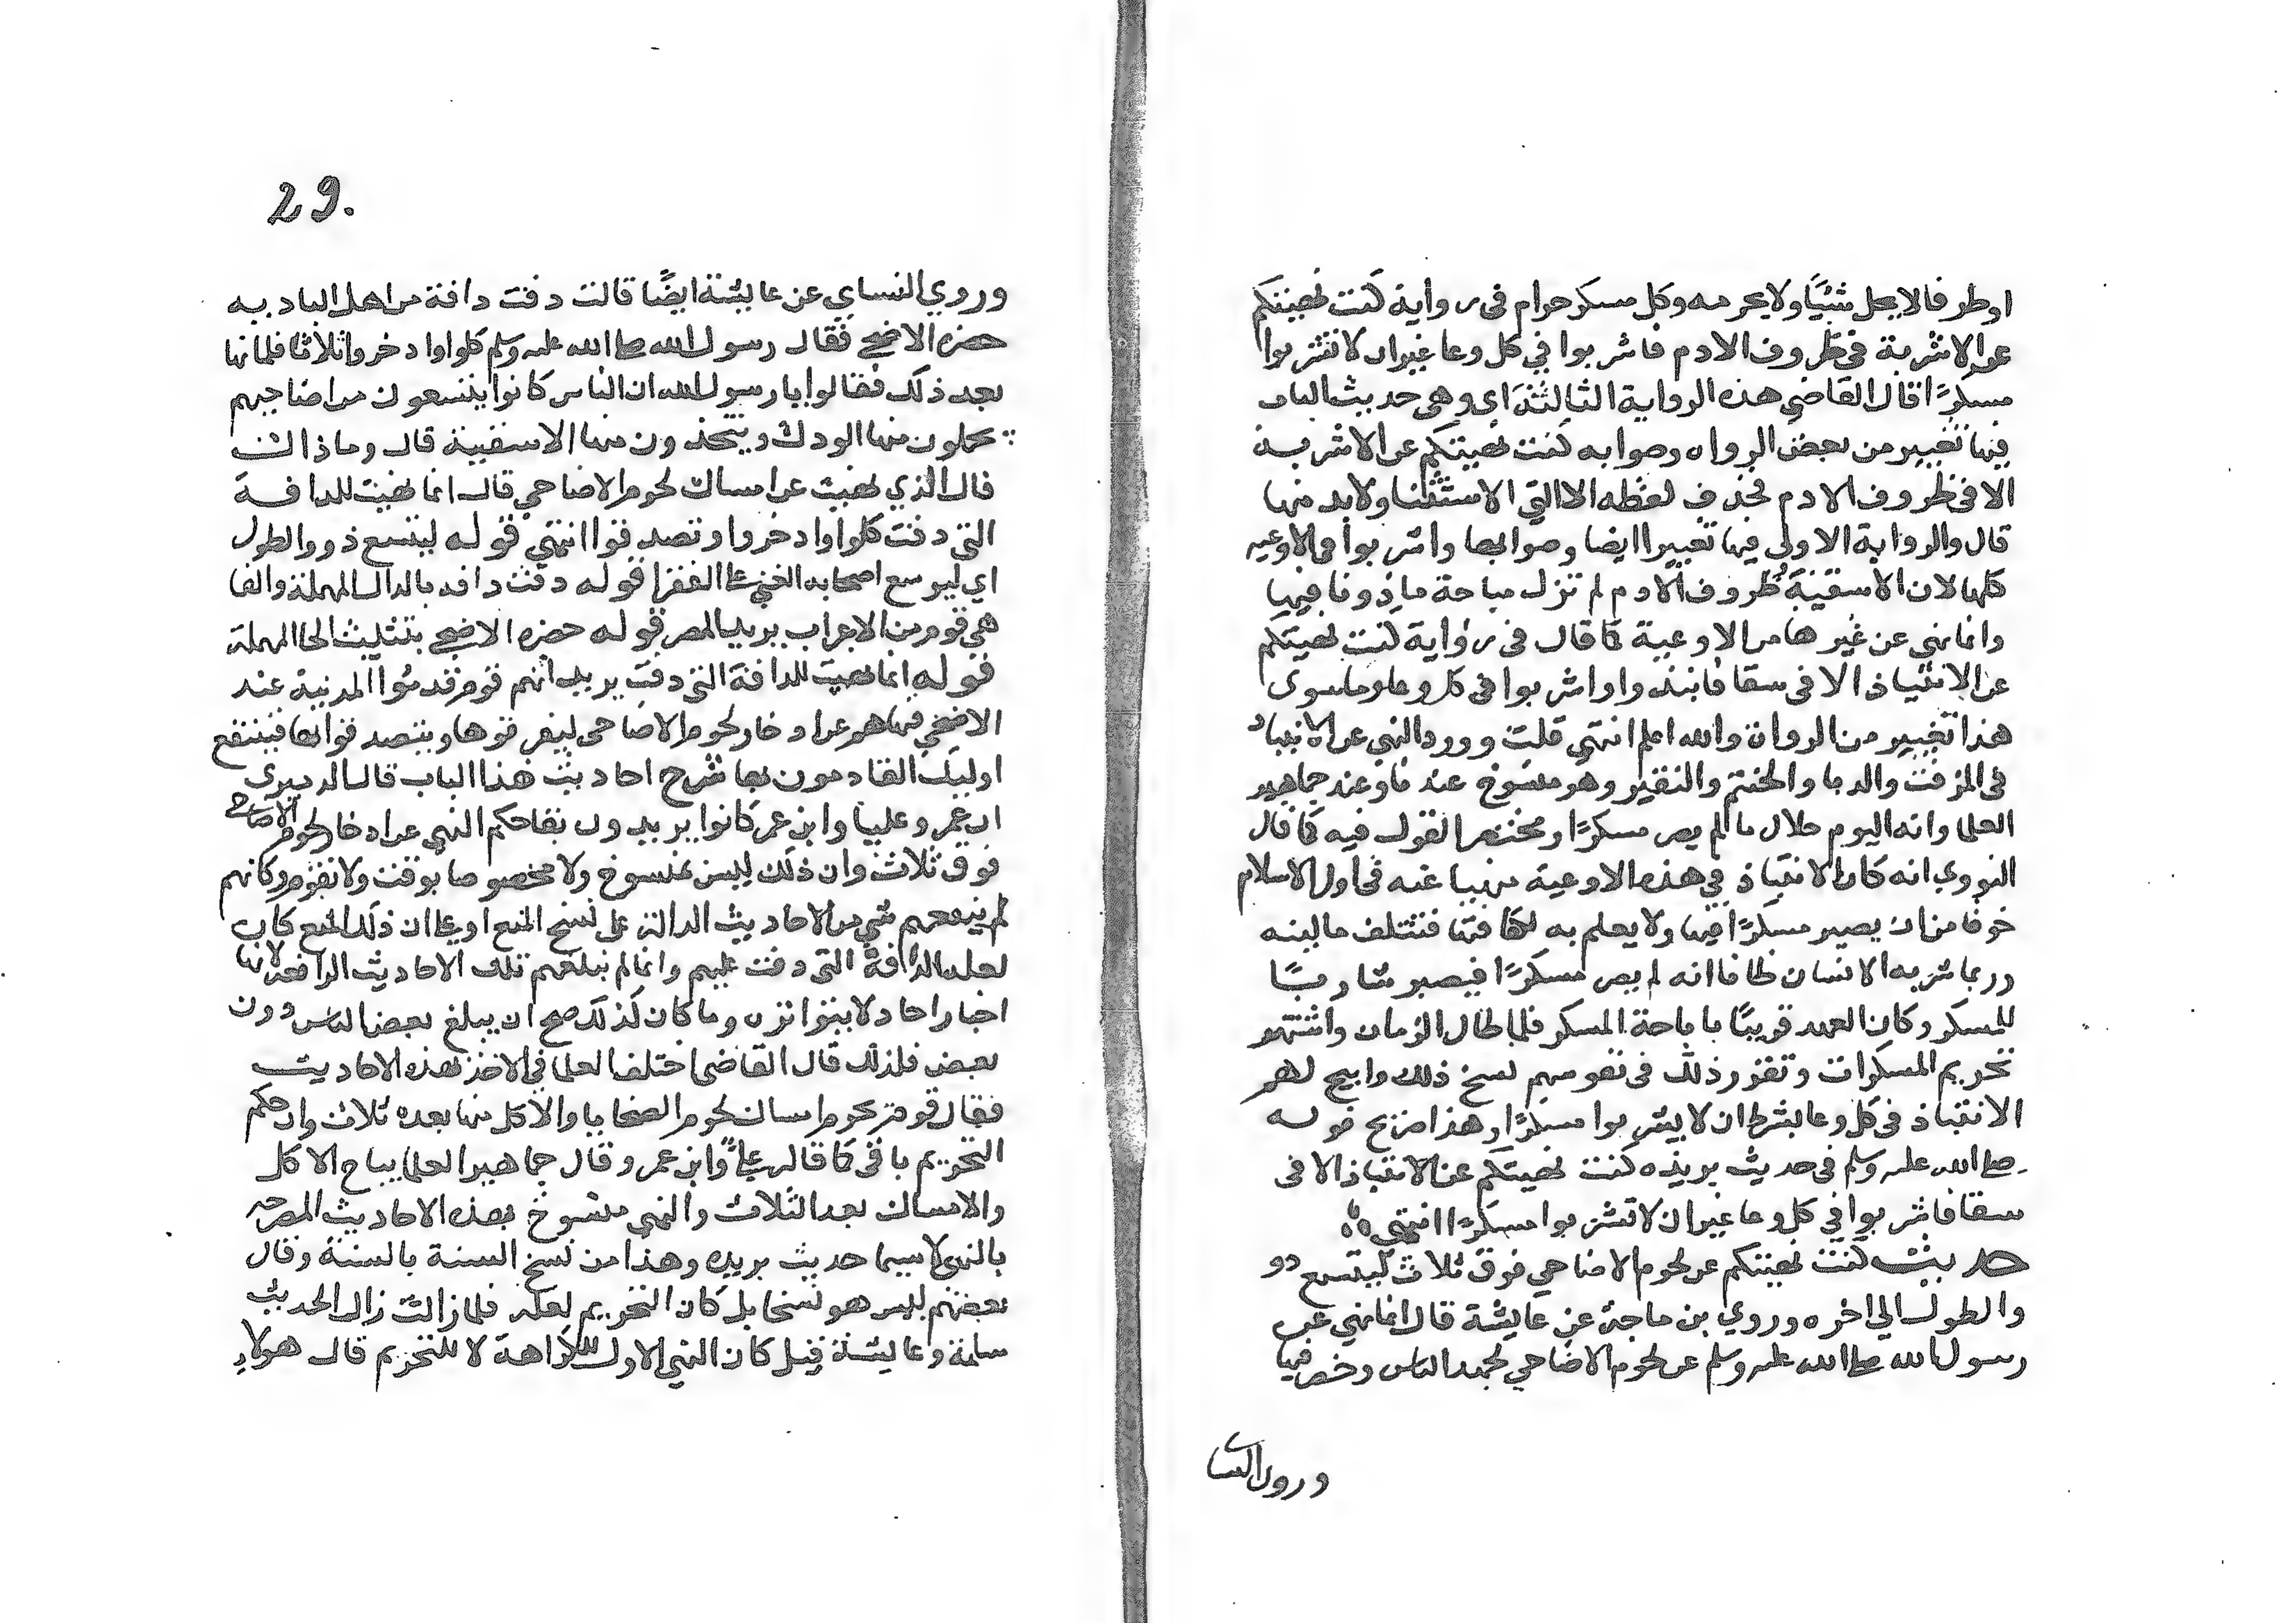 او ظرفا لا يحل شيئا ولا يحرمه وكل مسكر حرام في رواية كنت نهيتكم
عن الاشربة في ظروف الادم فاشربوا في كل وعا غير ان لا تشربوا
مسكرًا قال القاضي هذه الرواية الثالثة اي وهي حديث الباب
فيها تغيير من بعض الرواه وصوابه كنت نهيتكم عن الاشربة
الا في ظروف الادم فحذف لفظه الا التي الاستثنا ولا بد منها
قال والرواية الاولى فيها تغيير ايضا وصوابها واشربوا في الاوعيه
كلها لان الاسقية وظروف الادم لم تزل مباحة ماذونا فيها
وانما نهي عن غيرها من الاوعية كما قال في رواية كنت نهيتكم
عن الانتباذ الا في سقا فانبذوا واشربوا في كل وعا وما سوى
هذا تغيير من الرواة والله اعلم انتهي قلت وورد النهي عن الانتباذ
في المزفت والدبا والحنتم والنقير وهو منسوخ عندنا وعند جماهير
العلما وانه اليوم حلال ما لم يصر مسكرًا ومختصر القول فيه كما قال
النووي انه كان الانتباذ في هذه الاوعية منهيا عنه في اول الاسلام
خوفا من ان يصير مسكرًا فيها ولا يعلم به لكثافتها فتتلف ماليته
وربما شربه الانسان ظانا انه لم يصر مسكرًا فيصير شاربًا
للمسكر وكان العهد قريبًا باباحة المسكر فلما طال الزمان واشتهر
تحريم المسكرات وتقرر ذلك في نفوسهم نسخ ذلك وابيح لهم
الانتباذ في كل وعا بشرط ان لا يشربوا مسكرًا وهذا صريح قوله
صلى الله عليه وسلم في حديث بريده كنت نهيتكم عن الانتباذ الا في
سقا فاشربوا في كل وعا غير ان لا تشربوا مسكرًا انتهي
حديث كنت نهيتكم عن لحوم الاضاحي فوق ثلاث ليتسع ذو
والطول الي اخره وروي بن ماجة عن عايشة قال انما نهي عن
رسول الله صلى الله عليه وسلم عن لحوم الاضاحي لجهد الناس ورخص فيها
وروى النسا
29.
وروي النساي عن عايشة ايضًا قالت دفت دافة من اهل الباديه
حضرة الاضحي فقال رسول الله صلى الله عليه وسلم كلوا وادخروا ثلاثا فلما كان
بعد ذلك فقالوا يا رسول الله ان الناس كانوا ينتفعون من اضاحيهم
يحملون منها الودك ويتخذون منها الاسقية قال وما ذاك
قال الذي نهيت عن امساك لحوم الاضاحي قال انما نهيت للدافة
التي دفت كلوا وادخروا وتصدقوا انتهي قوله ليتسع ذوو الطول
اي ليوسع اصحابه الغني على الفقرا قوله دفت دافه بالدال المهملة والفا
هي قوم من الاعراب يريد المصر قوله حضرة الاضحي بتثليث الحا المهملة
قوله انما نهيت للدافة التي دفت يريد انهم قوم قدموا المدينة عند
الاضحي فنهاهم عن ادخار لحوم الاضاحي ليفرقوها ويتصدقوا بها فينتفع
اوليك القادمون بها شرح احاديث هذا الباب قال الدميري
ان عمر وعليا وابن عمر كانوا يريدون بقا حكم النهي عن ادخار لحوم الاضاحي
فوق ثلاث وان ذلك ليس بمنسوخ ولا مخصوصا بوقت ولا بقوم وكانهم
لم يبلغهم شي من الاحاديث الدالة على نسخ المنع او على ان ذلك المنع كان
لعله الدافة التي دفت عليهم وانما لم تبلغهم تلك الاحاديث الرافعه لانها
اخبار احاد لا بتواتره وما كان كذلك صح ان يبلغ بعض الناس دون
بعض فلذلك قال القاضي اختلف العلما في الاخذ بهذه الاحاديث
فقال قوم يحرم امساك لحوم الضحايا والاكل منها بعده ثلاث وان حكم
التحريم باقي كما قاله علي وابن عمر وقال جماهير العلما يباح الاكل
والامساك بعد الثلاث والنهي منسوخ بهذه الاحاديث المصرحه
بالنهي لا سيما حديث بريده وهذا من نسخ السنة بالسنة وقال
بعضهم ليس هو نسخا بل كان التحريم لعله فلما زالت زال الحديث
سلمة وعايشة قيل كان النهي الاول للكراهة لا للتحريم قال هولاء